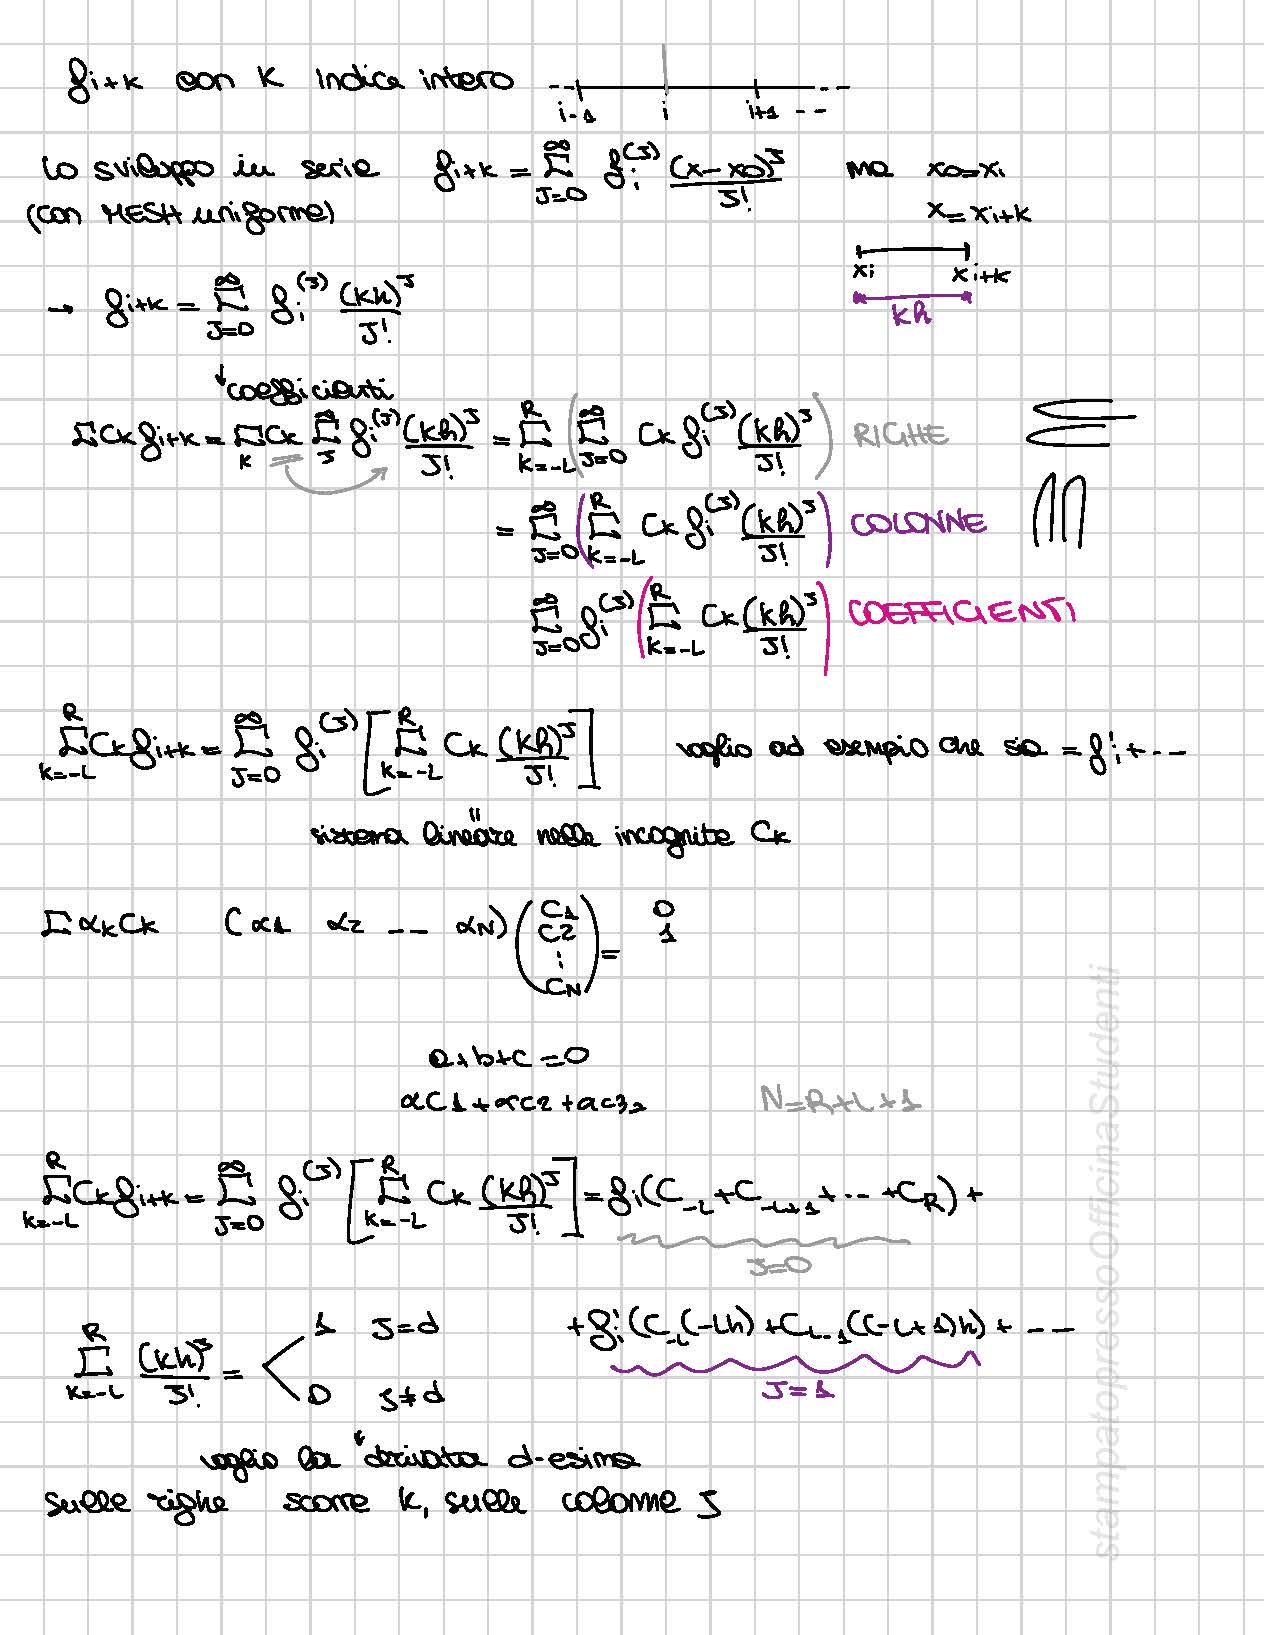 fi+k con K indice intero
i-1 i i+1
lo sviluppo in serie fi+k = Σ_{J=0}^{∞} fi^(J) (x-x0)^J/J! ma x0=xi
(con MESH uniforme) x=xi+k
xi xi+k
kh
→ fi+k = Σ_{J=0}^{∞} fi^(J) (kh)^J/J!
↓ coefficienti
ΣCk fi+k = Σ_K Ck Σ_J^{∞} fi^(J) (kh)^J/J! = Σ_{K=-L}^{R} (Σ_{J=0}^{∞} Ck fi^(J) (kh)^J/J!) RIGHE
= Σ_{J=0}^{∞} (Σ_{K=-L}^{R} Ck fi^(J) (kh)^J/J!) COLONNE
Σ_{J=0}^{∞} fi^(J) (Σ_{K=-L}^{R} Ck (kh)^J/J!) COEFFICIENTI
Σ_{K=-L}^{R} Ck fi+k = Σ_{J=0}^{∞} fi^(J) [Σ_{K=-L}^{R} Ck (kh)^J/J!] voglio ad esempio che sia = f'i+---
sistema lineare nelle incognite Ck
Σ αk Ck (α1 α2 --- αN) (C1 C2 ⋮ CN) = 0 1
a+b+c=0
αC1+αC2+αC3
N=R+L+1
Σ_{K=-L}^{R} Ck fi+k = Σ_{J=0}^{∞} fi^(J) [Σ_{K=-L}^{R} Ck (kh)^J/J!] = fi(C-L+C-L+1+···+CR)+
J=0
Σ_{K=-L}^{R} (kh)^J/J! = < 1 J=d
0 J≠d
+f'i(C-L(-Lh)+CL-1((-L+1)h)+---
J=1
voglio la derivata d-esima
sulle righe scorre k, sulle colonne J
stampatopressoOfficinaStudenti